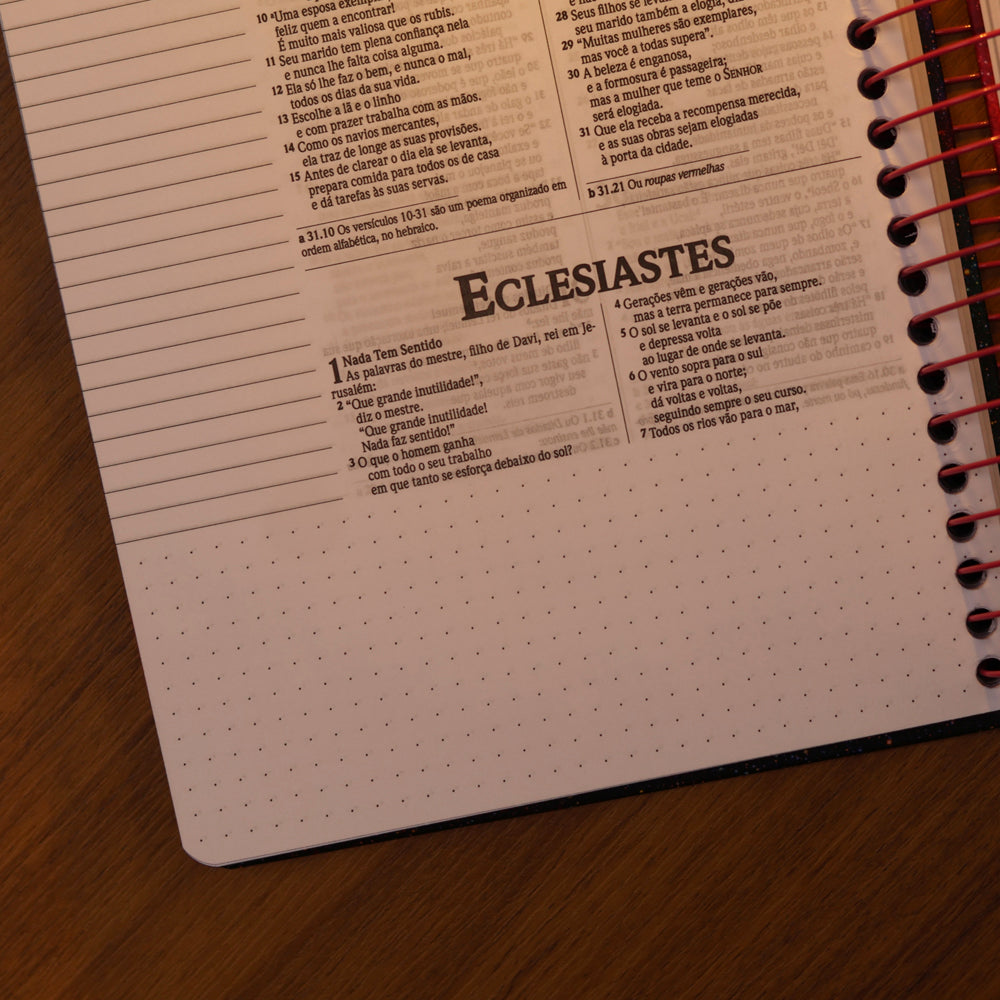 10 ªUma esposa
feliz quem a encontrar!
É muito mais valiosa que os rubis.
11 Seu marido tem plena confiança nela
e nunca lhe falta coisa alguma.
12 Ela só lhe faz o bem, e nunca o mal,
todos os dias da sua vida.
13 Escolhe a lã e o linho
e com prazer trabalha com as mãos.
14 Como os navios mercantes,
ela traz de longe as suas provisões.
15 Antes de clarear o dia ela se levanta,
prepara comida para todos os de casa
e dá tarefas às suas servas.
28 Seus filhos se
seu marido também a elogia,
29 “Muitas mulheres são exemplares,
mas você a todas supera”.
30 A beleza é enganosa,
e a formosura é passageira;
mas a mulher que teme o SENHOR
será elogiada.
31 Que ela receba a recompensa merecida,
e as suas obras sejam elogiadas
à porta da cidade.
a 31.10 Os versículos 10-31 são um poema organizado em
ordem alfabética, no hebraico.
b 31.21 Ou roupas vermelhas
ECLESIASTES
Nada Tem Sentido
1 As palavras do mestre, filho de Davi, rei em Je-
rusalém:
2 “Que grande inutilidade!”,
diz o mestre.
“Que grande inutilidade!
Nada faz sentido!”
3 O que o homem ganha
com todo o seu trabalho
em que tanto se esforça debaixo do sol?
4 Gerações vêm e gerações vão,
mas a terra permanece para sempre.
5 O sol se levanta e o sol se põe
e depressa volta
ao lugar de onde se levanta.
6 O vento sopra para o sul
e vira para o norte;
dá voltas e voltas,
seguindo sempre o seu curso.
7 Todos os rios vão para o mar,